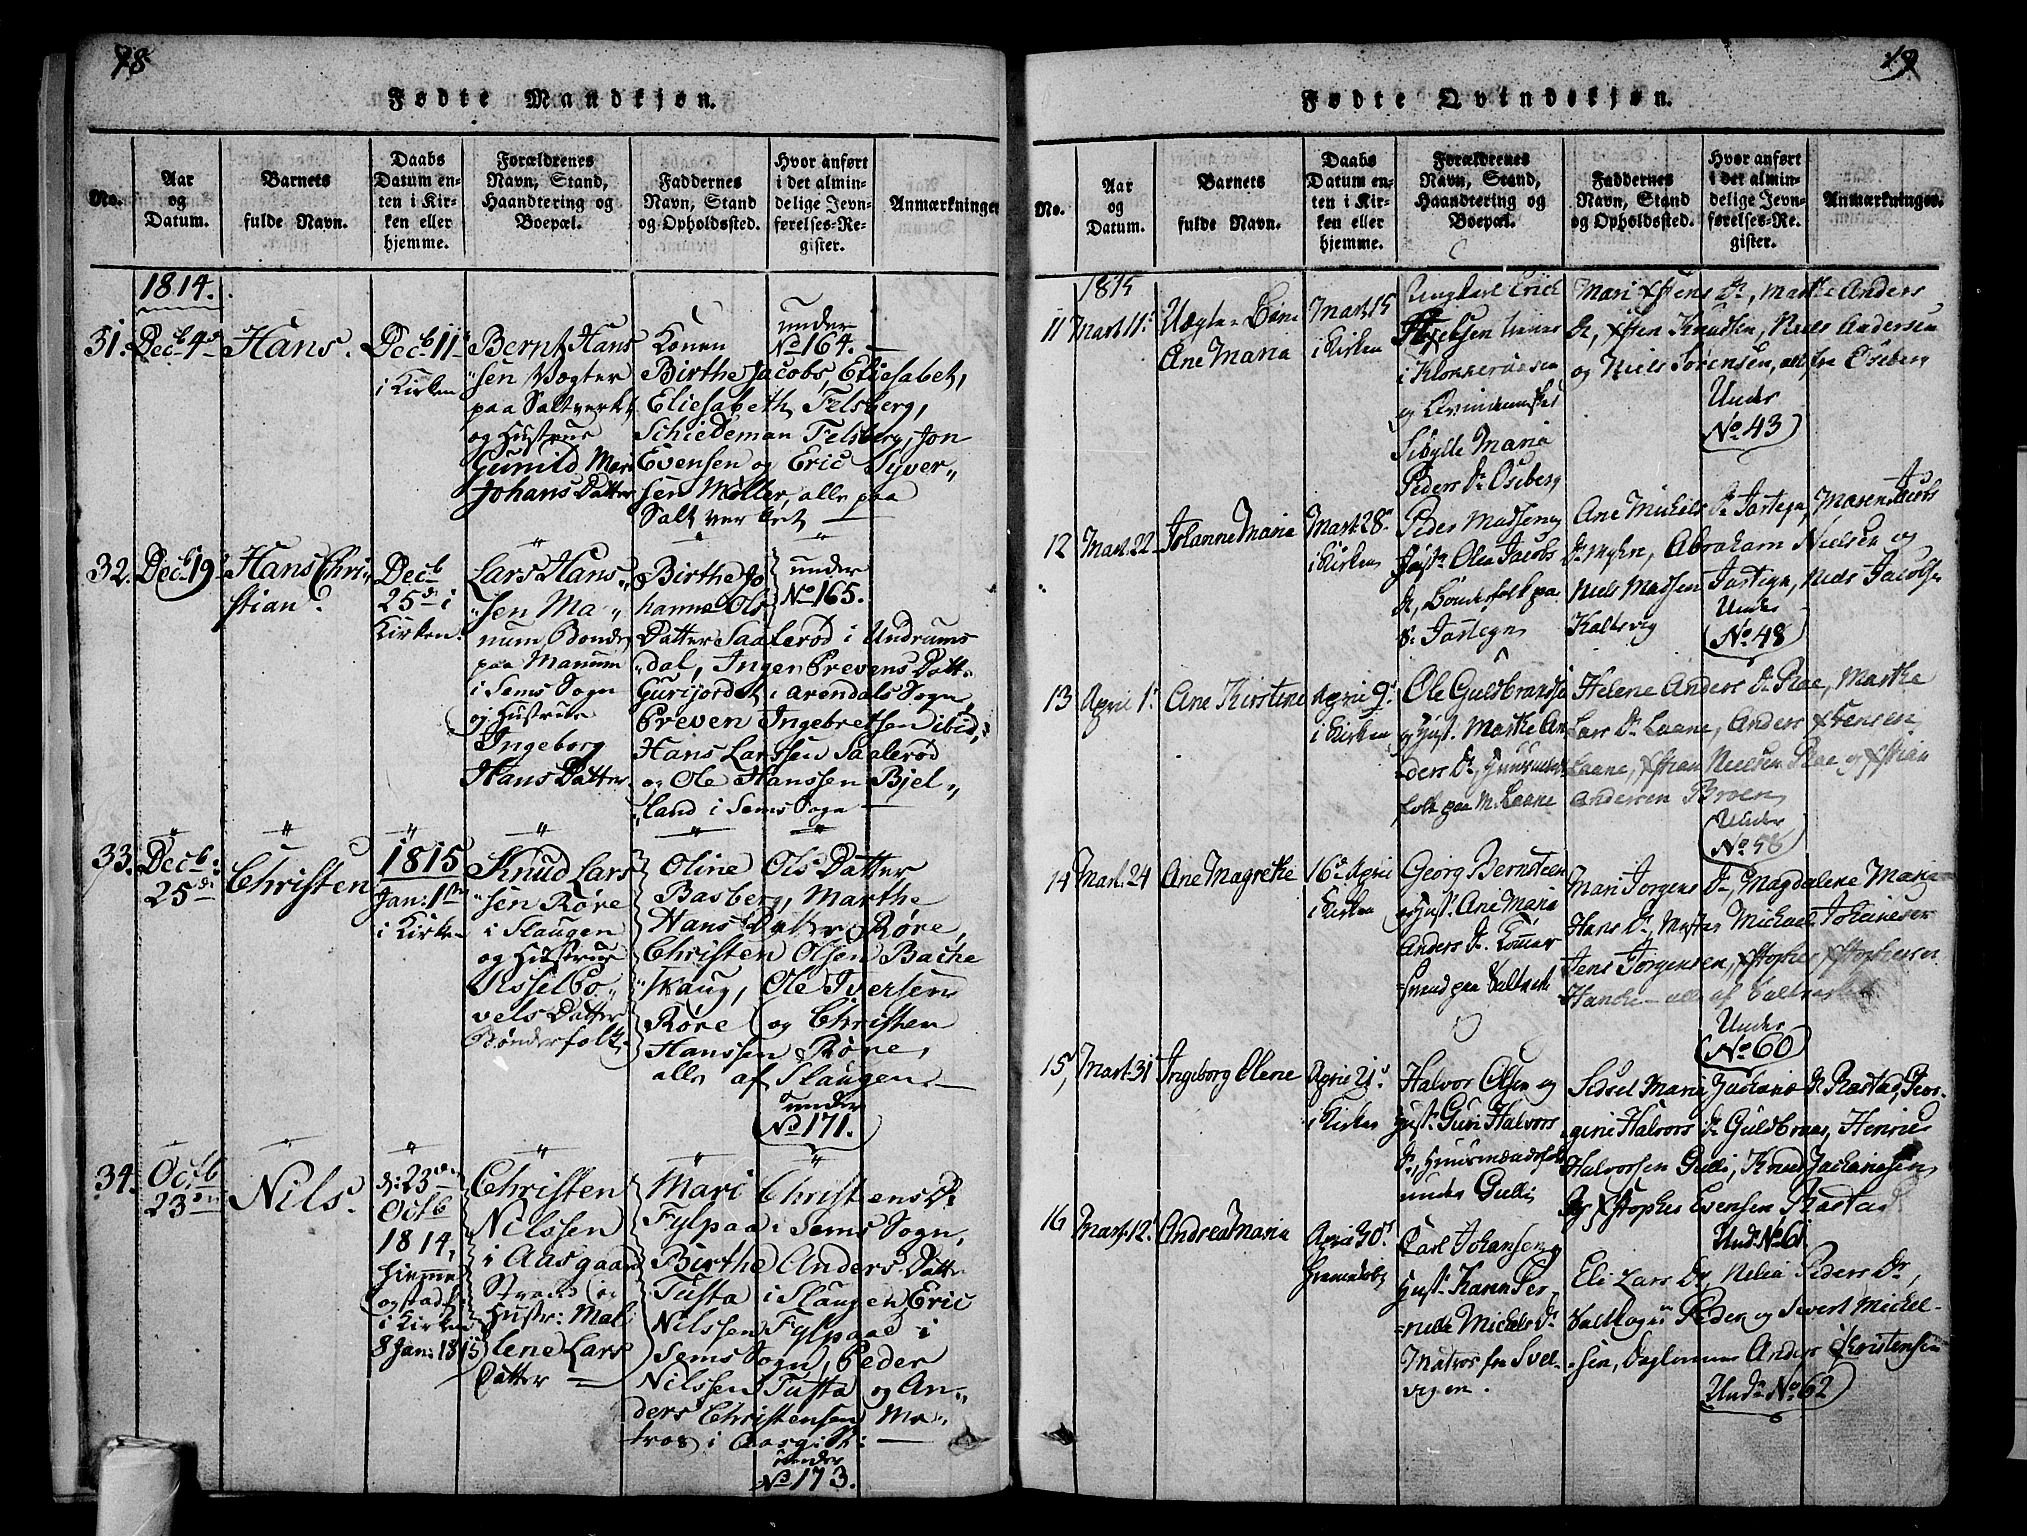 78
Fødte Mandkjøn.
No.
Aar
og
Datum.
Barnets
fulde Navn.
Daabs
Datum en-
ten i Kir-
ken eller
hjemme.
Forældrenes
Navn, Stand,
Haandtering og
Boepæl.
Faddernes
Navn, Stand
og Opholdssted.
Hvor anført
i det almin-
delige Jevn-
førelses-Re-
gister.
Anmærkninger
1814.
31.
Decb 4de
Hans.
Decb 11
i Kirken
Bernt Hans
sen Vægter
paa Saltverket
og Hustrue
Gunild Mari
Johans Datter
Konen
Birthe Jacobs, Eliesabet,
Eliesabeth Felsberg,
Schiedeman Felsberg, Jon
Evensen og Eric Syver„
sen Møller, alle paa
Saltverket
under
No 164.
32.
Decb 19
Hans Chri„
stian.
Decb
25de i
Kirken.
Lars Hans„
sen Ma„
num Bonde
paa Manum
i Sems Sogn
og Hustrue
Ingeborg
Hans Datter
Birthe Jo
hanne Ols
Datter Saalerød i Undrums
dal, Inger Prevens Datt.
Gurijordet i Arendals Sogn,
Preven Ingebretsen ibid.
Hans Larssen Saalerød
og Ole Hanssen Bjel„
land i Sems Sogn
under
No 165.
33.
Decb:
25de
Christen
1815
Jan: 1ste
i Kirken
Knud Lars
sen Røre
i Slaugen
og Hustrue
Sisselbo„
vels Datter
Bønderfolk.
Oline Ols Datter
Basberg, Marthe
Hans Datter Røre,
Christen Olsen Bache
skaug, Ole Iversen
Røre og Christen
Hanssen Røre,
alle af Slaugen
under
No 171.
34.
Octb
23de
Nils.
d: 23de
Octb
1814,
hiemme
og stadf.
i Kirken
8 Jan: 1815
Christen
Nilssen
i Aasgaard
Strand og
Hustr: Mal
lene Lars
Datter
Mari Christens D.
Fylpaa i Sems Sogn,
Birthe Anders Datter
Tufta i Slaugen Eric
Nilssen Fylpaa i
Sems Sogn, Peder
Nilssen Tufta og An„
ders Christensen Ma„
tros i Aasg: St:
under
No 173.
79
Fødte Qvindekjøn.
No.
Aar
og
Datum.
Barnets
fulde Navn.
Daabs
Datum en-
ten i Kir-
ken eller
hjemme.
Forældrenes
Navn, Stand,
Haandtering og
Boepæl.
Faddernes
Navn, Stand
og Opholdssted.
Hvor anført
i det almin-
delige Jevn-
førelses-Re-
gister.
Anmærkninger.
1815
11
Mart. 11.
Uægte Børn
Ane Maria
Mart. 15
i Kirken
Ungkarl Erick
i Klokkeraasen
og Qvindemsket
Sibylle Maria
Peders Dr Oseberg
Mari Xstens Dr, Marthe Anders
Dr, Xsten Knudsen, Niels Andersen
og Niels Sørensen, alle fra Oseberg
Under
No 43
12
Mart. 22
Johanne Maria
Mart. 28
i Kirken
Peder Madsen og
Hust. Olea Jacobs
Dr, Bønderfolk paa
Jartegn
Ane Michels Dr Jartegn, Maren Jacobs
Dr Myhn, Abraham Nielsen og
Niels Madsen Jartegn, Niels Jacobsen
Kaltsvig
Under
No 48
13
April 1.
Ane Kirstine
April 9.
i Kirken
Ole Guldbrandse
og Hust. Marthe An
ders Dr, Huusmands
folk paa N. Laane
Helene Anders Dr Roe, Marthe
Lars Dr Laane, Anders Xstensen
Laane, Xstian Nielsen Roe og Xstian
Andersen Broen
Under
No 58
14
Mart. 24
Ane Magrethe
16 April
i Kirken
Georg Bernsteen
og Hust. Ane Maria
Anders Dr. Tømmer
mand paa Valløe
Mari Jorgens Dr, Magdalene Maria
Hans Dr, Mester Michael Johannesen
Jens Jorgensen, Xstopher Xstophersen
Hanche alle af
Under
No 60
15
Mart. 31
Ingeborg Olene
April 21.
i Kirken
Halvor Olsen og
Hust. Guri Halvors
Dr, Huusmandsfolk
under Gulli
Sidsel Marie Zacharis Dr Rastad, Jør-
gine Halvors Dr Guldbraas, Henric
Halvorsen Gulli, Knud Zachariasen
og Xstopher Evensen Rastad
Und. No 61
16
Mart. 12.
Andrea Maria
April 30.
Fremdeb
Carl Johansen og
Hust. Karen Per-
nede Michels Dr
Matros fra Svel-
vigen.
Eli Lars Dr, Nelia Peders Dr,
Peder og Sivert Michel-
sen, Anders Christensen
Und. No 62